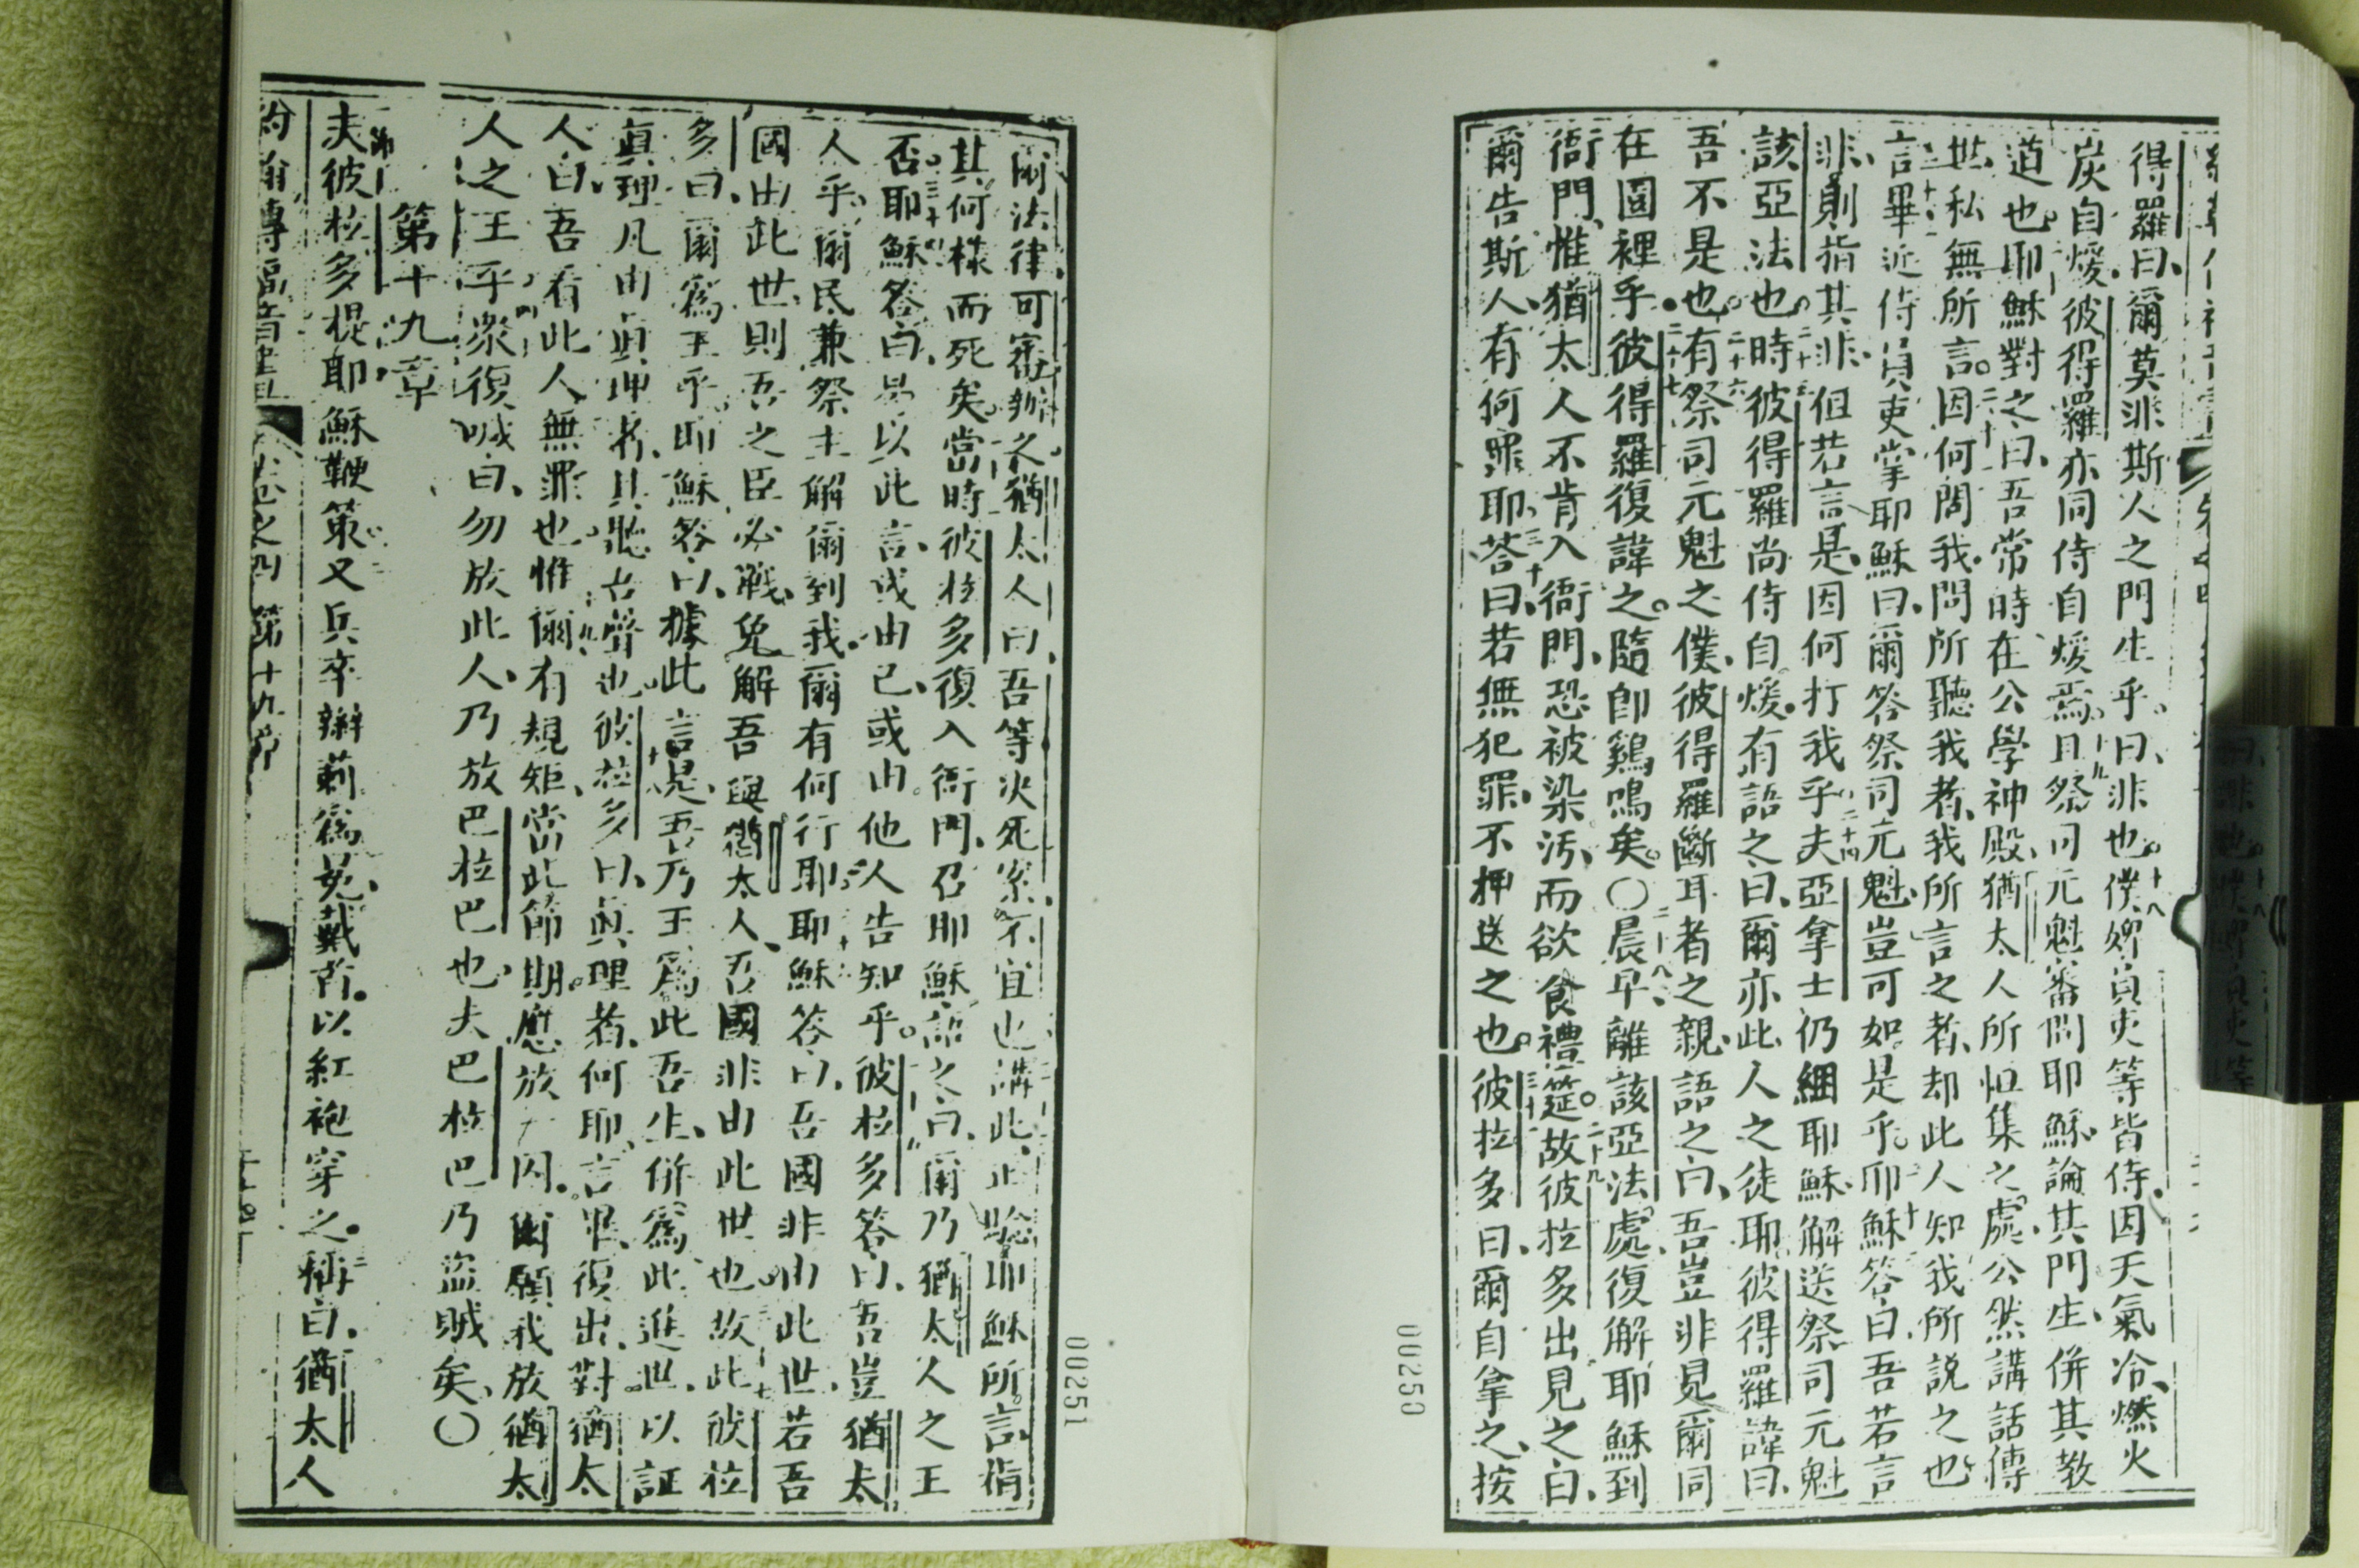 得羅曰、爾莫非斯人之門生乎。曰、非也。十八僕婢員吏等皆侍、因天氣冷、燃火
炭自煖、彼得羅亦同侍自煖焉。十九且祭司元魁審問耶穌、論其門生、併其教
道也。耶穌對之曰、吾常時在公學神殿、猶太人所恒集之處、公然講話傳
世、私無所言。二十一因何問我、問所聽我者、我所言之者、却此人知我所說之也。
言畢近侍員吏掌耶穌曰、爾答祭司元魁、豈可如是乎。耶穌答曰、吾若言
非、則指其非、但若言是、因何打我乎。二十四夫亞拿士仍綑耶穌、解送祭司元魁
該亞法也。二十五時彼得羅尚侍自煖。有語之曰、爾亦此人之徒耶。彼得羅諱曰、
吾不是也。二十六有祭司元魁之僕、彼得羅斷耳者之親、語之曰、吾豈非見爾同
在園裡乎。二十七彼得羅復諱之。隨卽鷄鳴矣。〇二十八晨早、離該亞法處、復解耶穌到
衙門、惟猶太人不肯入衙門、恐被染汚、而欲食禮筵。二十九故彼拉多出見之曰、
爾告斯人有何罪耶。三十答曰、若無犯罪、不押送之也。三十一彼拉多曰、爾自拿之、按
00250
爾法律可審辦之、猶太人曰、吾等決死案不宜也。講此、止驗耶穌所言、指
其何樣而死矣。當時彼拉多復入衙門、召耶穌、語之曰、爾乃猶太人之王
否。三十四耶穌答曰、爾以此言、或由己、或由他人告知乎。彼拉多答曰、吾豈猶太
人乎、爾民兼祭主解爾到我。爾有何行耶。耶穌答曰、吾國非由此世、若吾
國由此世、則吾之臣必戰、免解吾與猶太人、吾國非由此世也。故此彼拉
多曰、爾爲王乎。耶穌答曰、據此言是、吾乃王、爲此吾生、併爲此進世、以証
眞理。凡由眞理者、其聽吾聲也。彼拉多曰、眞理者何耶。言畢、復出、對猶太
人曰、吾看此人無罪也。惟爾有規矩、當此節期、應放一囚。爾願我放猶太
人之王乎。衆復喊曰、勿放此人、乃放巴拉巴也。夫巴拉巴乃盜賊矣。〇
第十九章
夫彼拉多棍耶穌鞭策。又兵卒辮莿爲冕、戴首。以紅袍穿之。三稱曰、猶太人
約翰傳福音書 卷之四 第十九章
00251